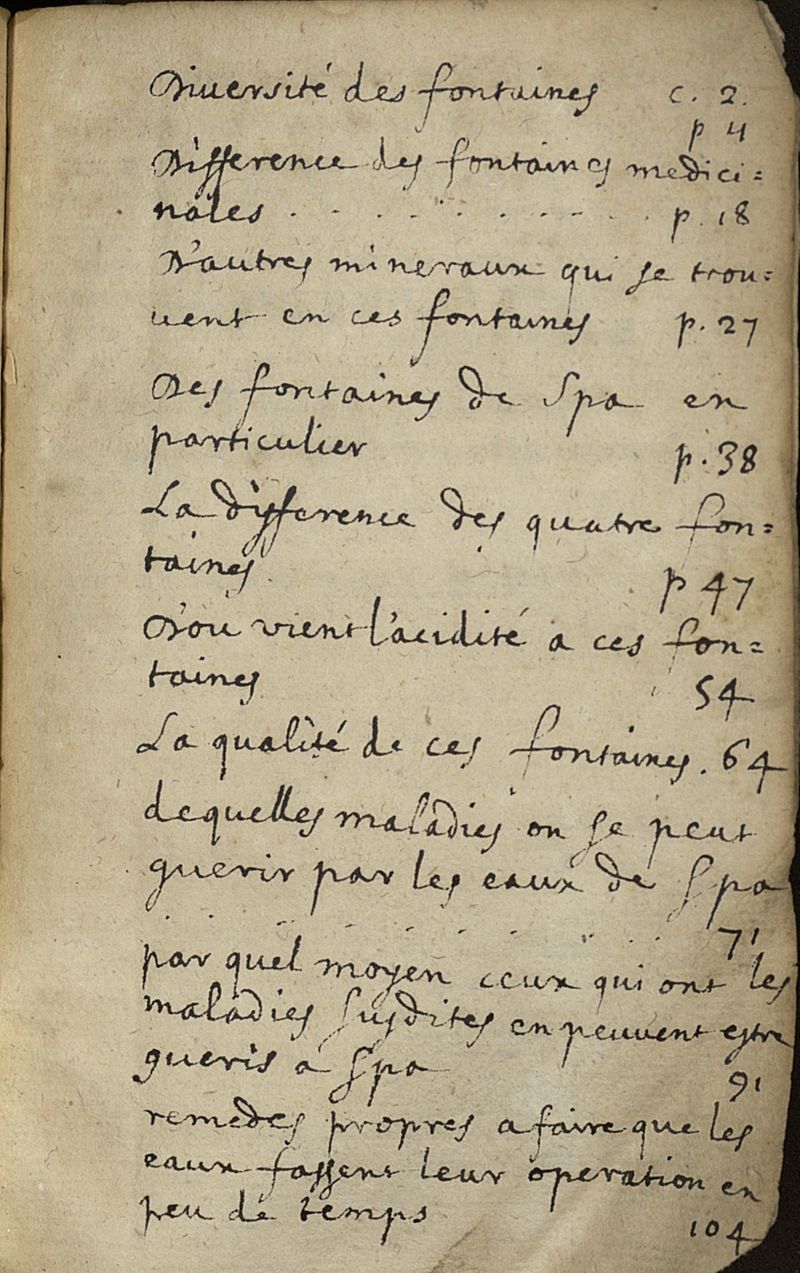 Diuersité des fontaines c. 2.
p 4
Difference des fontaines medici=
nales . . . . . . . . . . p. 18
D'autres mineraux qui se trou=
uent en ces fontaines p. 27
Des fontaines de Spa en
particulier p. 38
La difference des quatre fon=
taines p 47
D'où vient l'acidité a ces fon=
taines 54
La qualité de ces fontaines. 64
de quelles maladies on se peut
guerir par les eaux de Spa
. . . . . . . . . 71
par quel moyen ceux qui ont les
maladies susdites en peuuent estre
gueris a Spa 91
remedes propres a faire que les
eaux fassent leur operation en
peu de temps 104